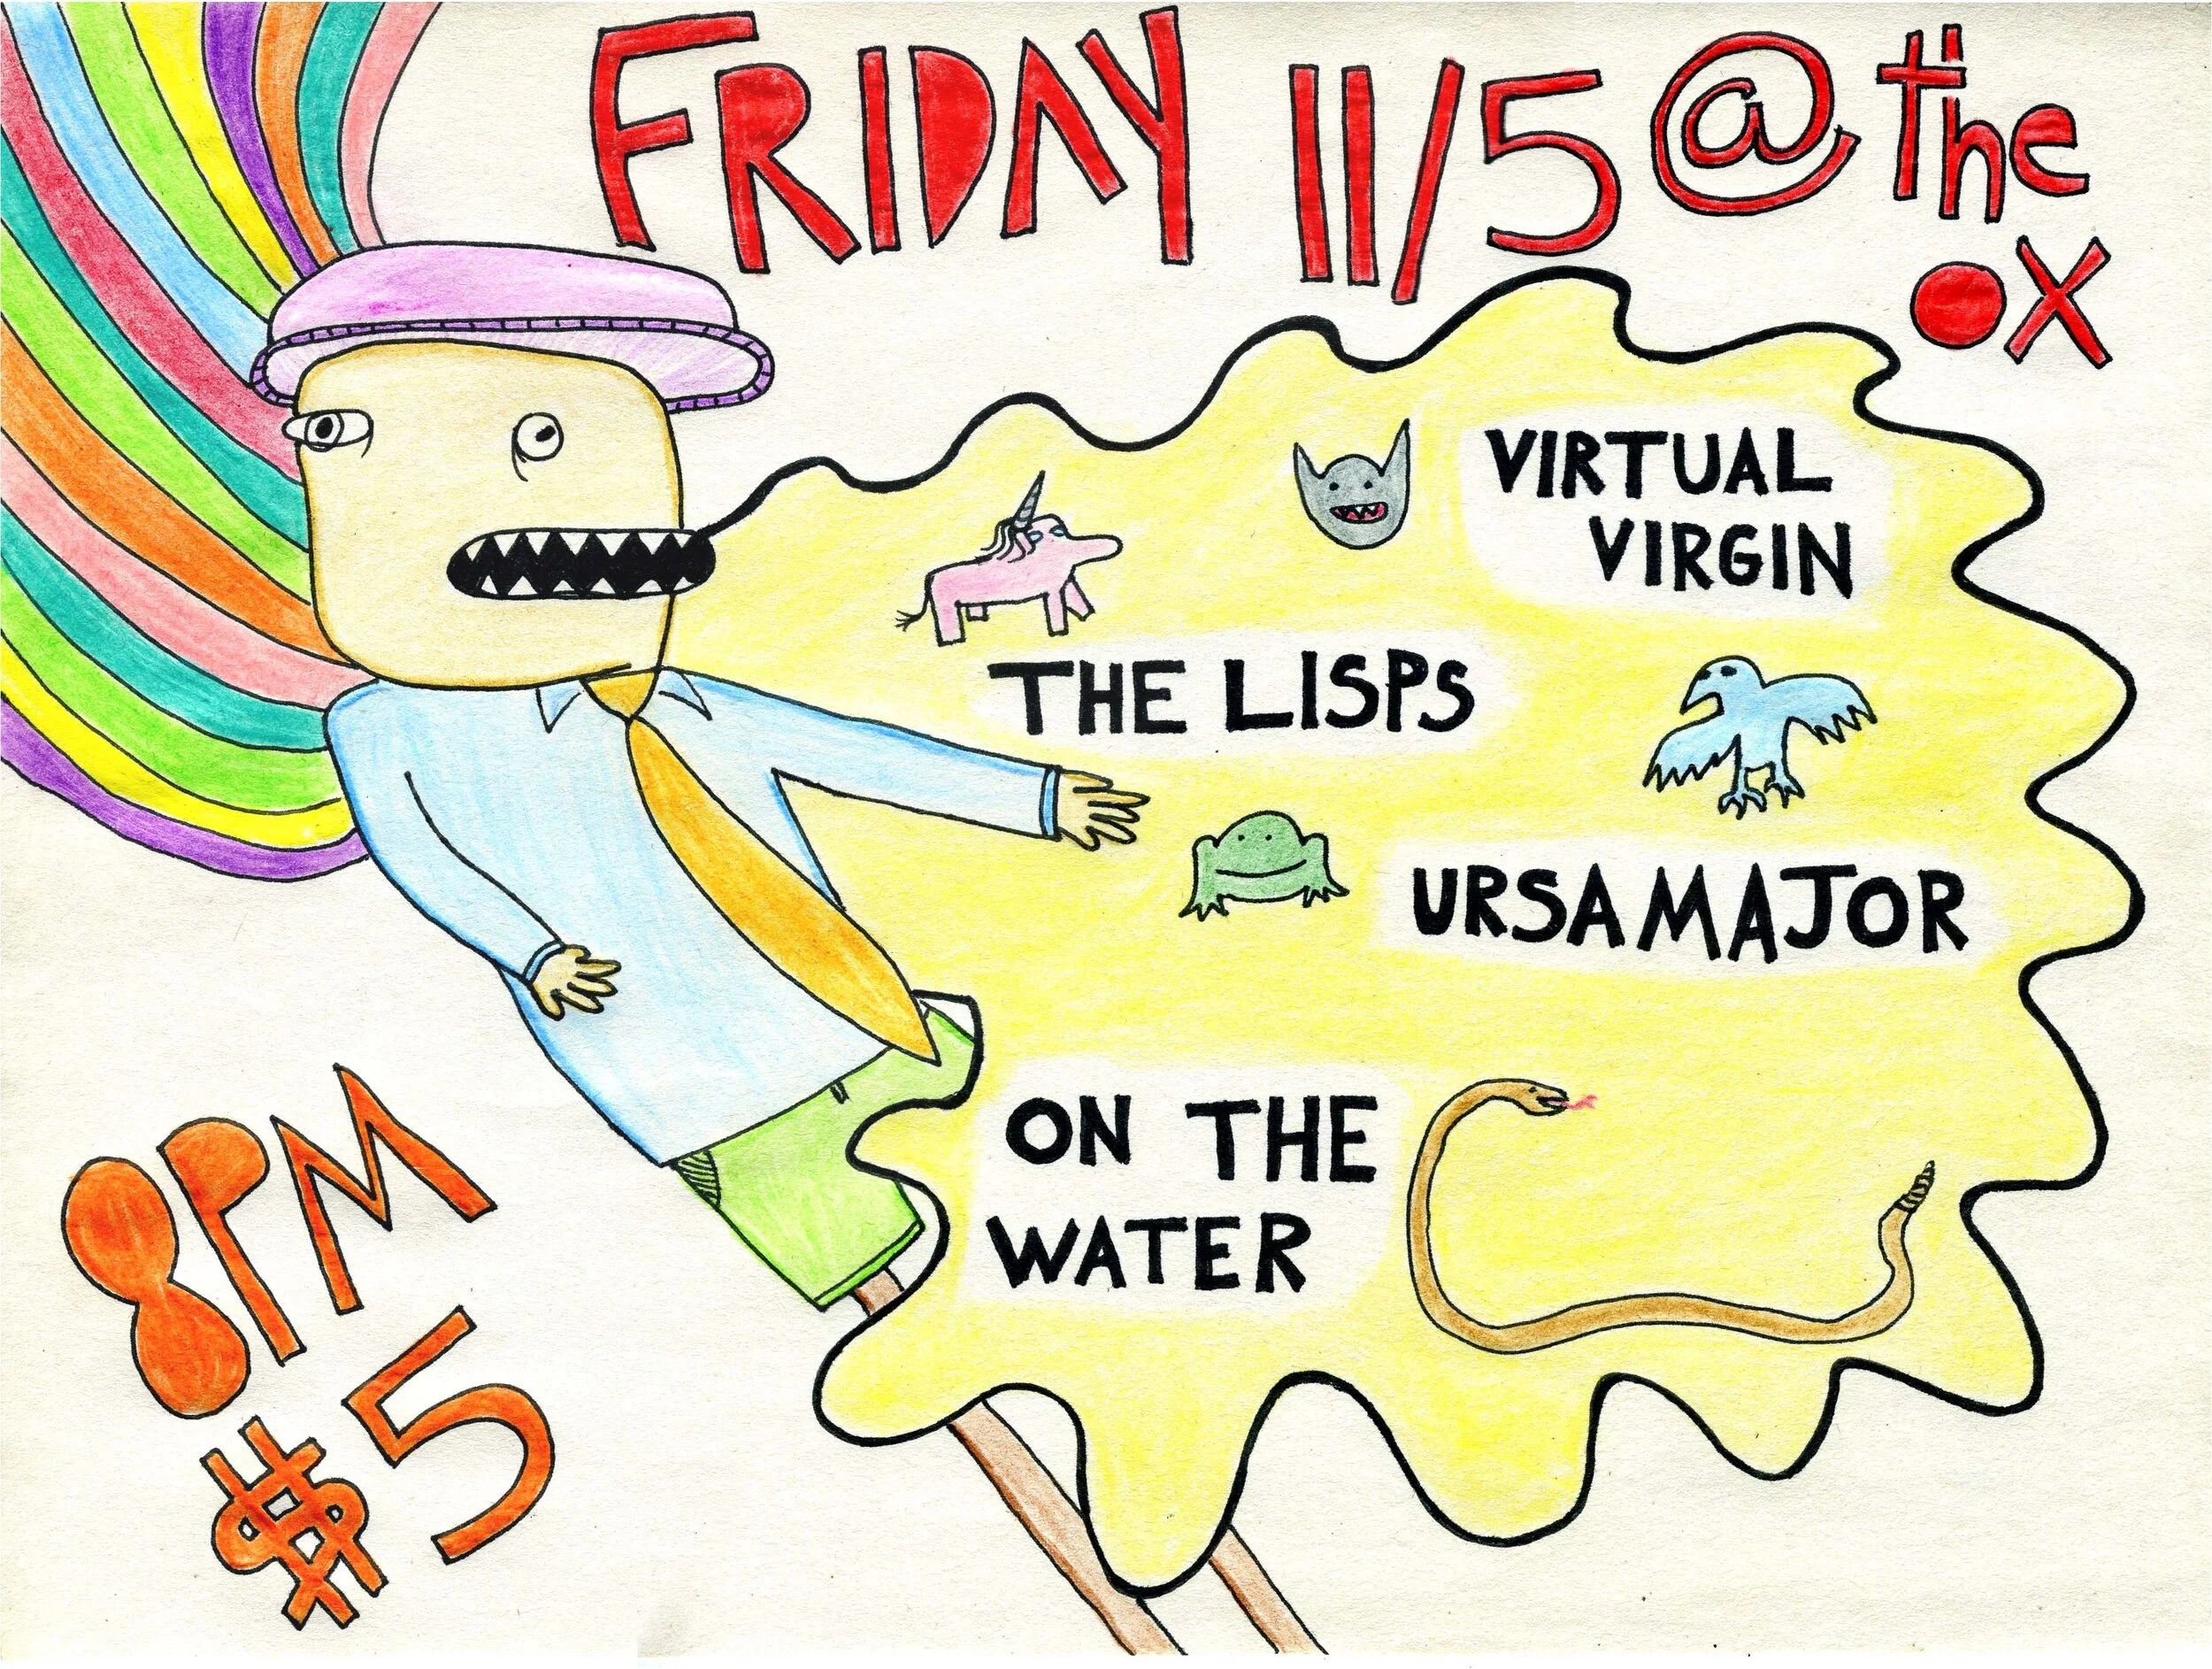 FRIDAY 11/5 @ the
OX
VIRTUAL
VIRGIN
THE LISPS
URSA MAJOR
ON THE
WATER
8PM
$5